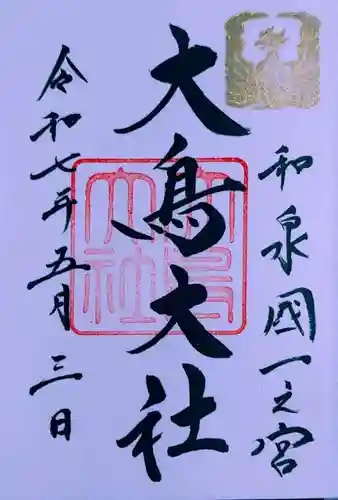 和泉國一之宮
大鳥大社
令和七年五月三日
大鳥大社